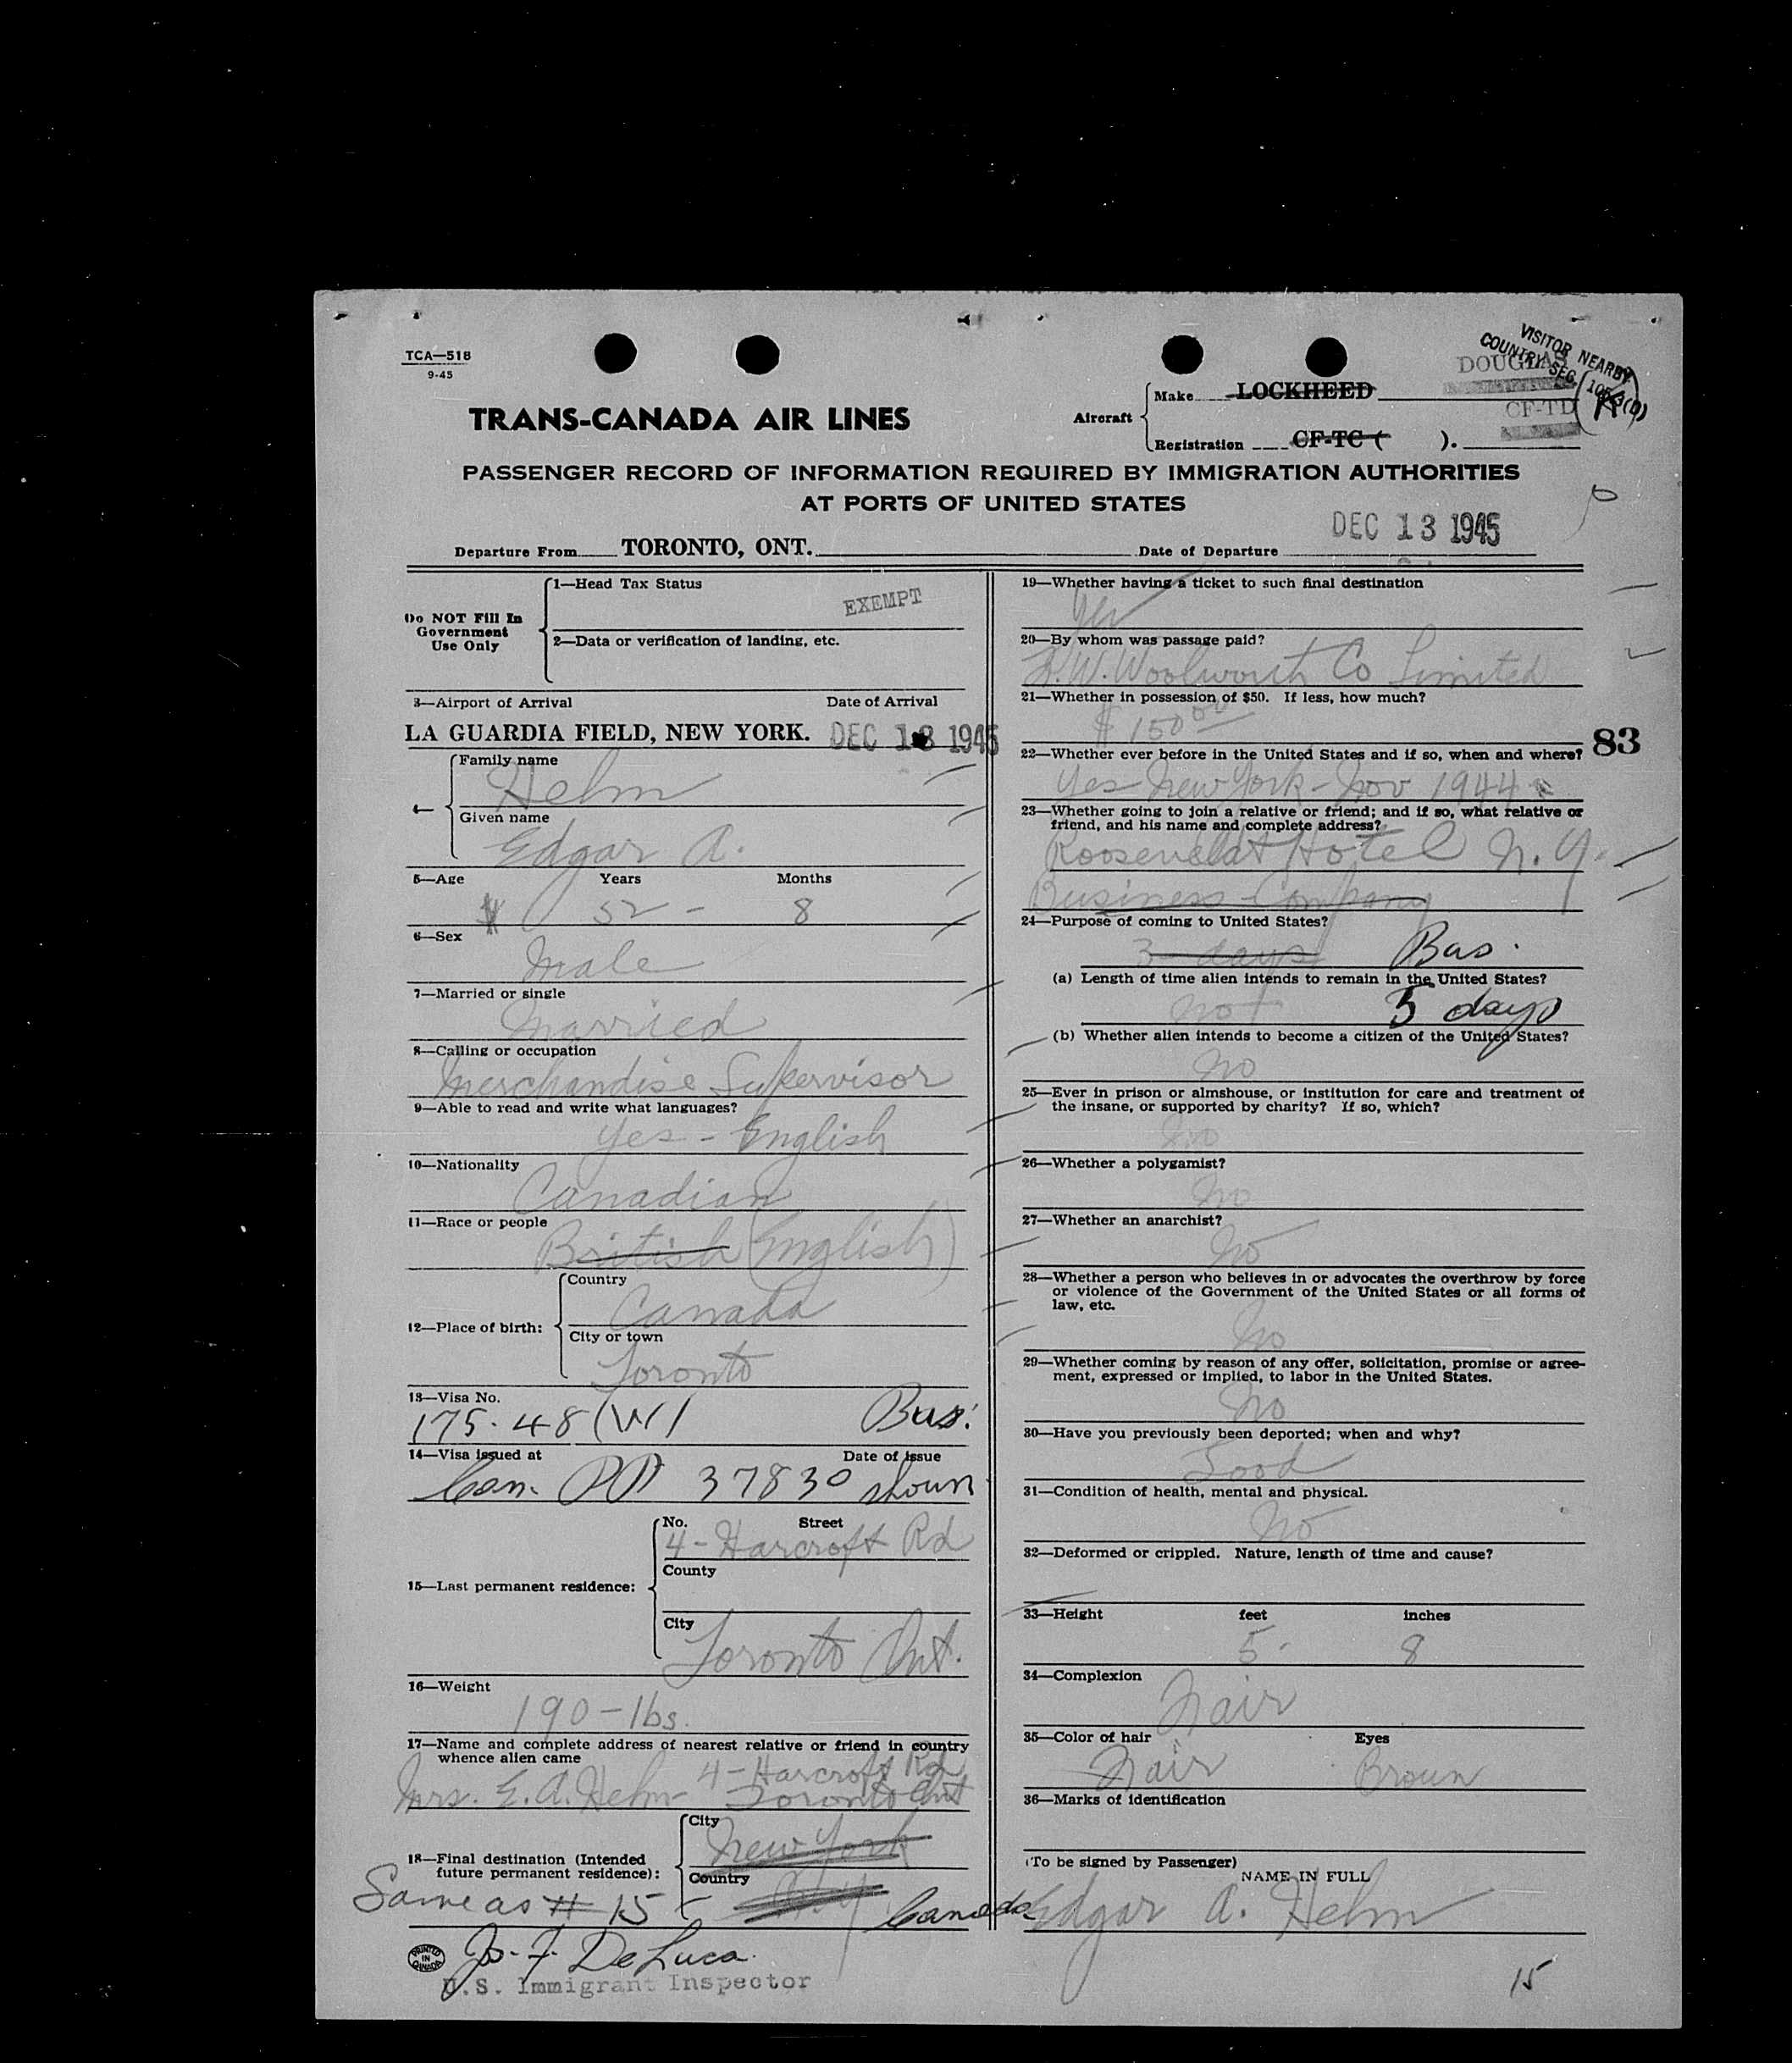 TCA—518
9-45
VISITOR NEARBY
COUNTRY SEC.
DOUGLAS
CF-TD
TRANS-CANADA AIR LINES
Aircraft
Make LOCKHEED
Registration CF-TC ( ).
PASSENGER RECORD OF INFORMATION REQUIRED BY IMMIGRATION AUTHORITIES
AT PORTS OF UNITED STATES
Departure From TORONTO, ONT. Date of Departure DEC 13 1945
Do NOT Fill In
Government
Use Only
1—Head Tax Status
EXEMPT
2—Data or verification of landing, etc.
3—Airport of Arrival Date of Arrival
LA GUARDIA FIELD, NEW YORK. DEC 13 1945
4—
Family name
Helm
Given name
Edgar A.
5—Age Years Months
52 - 8
6—Sex
Male
7—Married or single
Married
8—Calling or occupation
Merchandise Supervisor
9—Able to read and write what languages?
Yes - English
10—Nationality
Canadian
11—Race or people
British (English)
12—Place of birth:
Country
Canada
City or town
Toronto
13—Visa No.
175.48 (W) Bus.
14—Visa issued at Date of issue
Can. PP 37830 shown
15—Last permanent residence:
No. Street
4 - Harcroft Rd
County
City
Toronto Ont.
16—Weight
190 - lbs.
17—Name and complete address of nearest relative or friend in country
whence alien came
Mrs. E. A. Helm - 4 - Harcroft Rd
Toronto Ont
18—Final destination (Intended
future permanent residence):
City
New York
Country
N.Y. Canada
Same as # 15
PRINTED IN CANADA
Jo. F. DeLuca
U.S. Immigrant Inspector
19—Whether having a ticket to such final destination
Yes
20—By whom was passage paid?
F. W. Woolworth Co Limited
21—Whether in possession of $50. If less, how much?
$150 00
83
22—Whether ever before in the United States and if so, when and where?
Yes - New York - Nov 1944
23—Whether going to join a relative or friend; and if so, what relative or
friend, and his name and complete address?
Roosevelt Hotel N.Y.
Business - Company
24—Purpose of coming to United States?
3 days Bus.
(a) Length of time alien intends to remain in the United States?
No 5 days
(b) Whether alien intends to become a citizen of the United States?
No
25—Ever in prison or almshouse, or institution for care and treatment of
the insane, or supported by charity? If so, which?
No
26—Whether a polygamist?
No
27—Whether an anarchist?
No
28—Whether a person who believes in or advocates the overthrow by force
or violence of the Government of the United States or all forms of
law, etc.
No
29—Whether coming by reason of any offer, solicitation, promise or agree-
ment, expressed or implied, to labor in the United States.
No
30—Have you previously been deported; when and why?
Good
31—Condition of health, mental and physical.
No
32—Deformed or crippled. Nature, length of time and cause?
33—Height feet inches
5 - 8
34—Complexion
Fair
35—Color of hair Eyes
Fair Brown
36—Marks of identification
(To be signed by Passenger)
NAME IN FULL
Edgar A. Helm
15